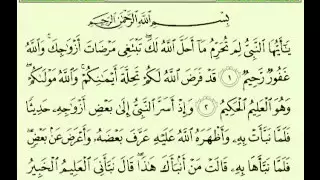 بِسْمِ ٱللَّهِ ٱلرَّحْمَٰنِ ٱلرَّحِيمِ
يَٰٓأَيُّهَا ٱلنَّبِىُّ لِمَ تُحَرِّمُ مَآ أَحَلَّ ٱللَّهُ لَكَ ۖ تَبْتَغِى مَرْضَاتَ أَزْوَٰجِكَ ۚ وَٱللَّهُ
غَفُورٌ رَّحِيمٌ ١ قَدْ فَرَضَ ٱللَّهُ لَكُمْ تَحِلَّةَ أَيْمَٰنِكُمْ ۚ وَٱللَّهُ مَوْلَىٰكُمْ ۖ
وَهُوَ ٱلْعَلِيمُ ٱلْحَكِيمُ ٢ وَإِذْ أَسَرَّ ٱلنَّبِىُّ إِلَىٰ بَعْضِ أَزْوَٰجِهِۦ حَدِيثًا
فَلَمَّا نَبَّأَتْ بِهِۦ وَأَظْهَرَهُ ٱللَّهُ عَلَيْهِ عَرَّفَ بَعْضَهُۥ وَأَعْرَضَ عَنۢ بَعْضٍ ۖ
فَلَمَّا نَبَّأَهَا بِهِۦ قَالَتْ مَنْ أَنۢبَأَكَ هَٰذَا ۖ قَالَ نَبَّأَنِىَ ٱلْعَلِيمُ ٱلْخَبِيرُ